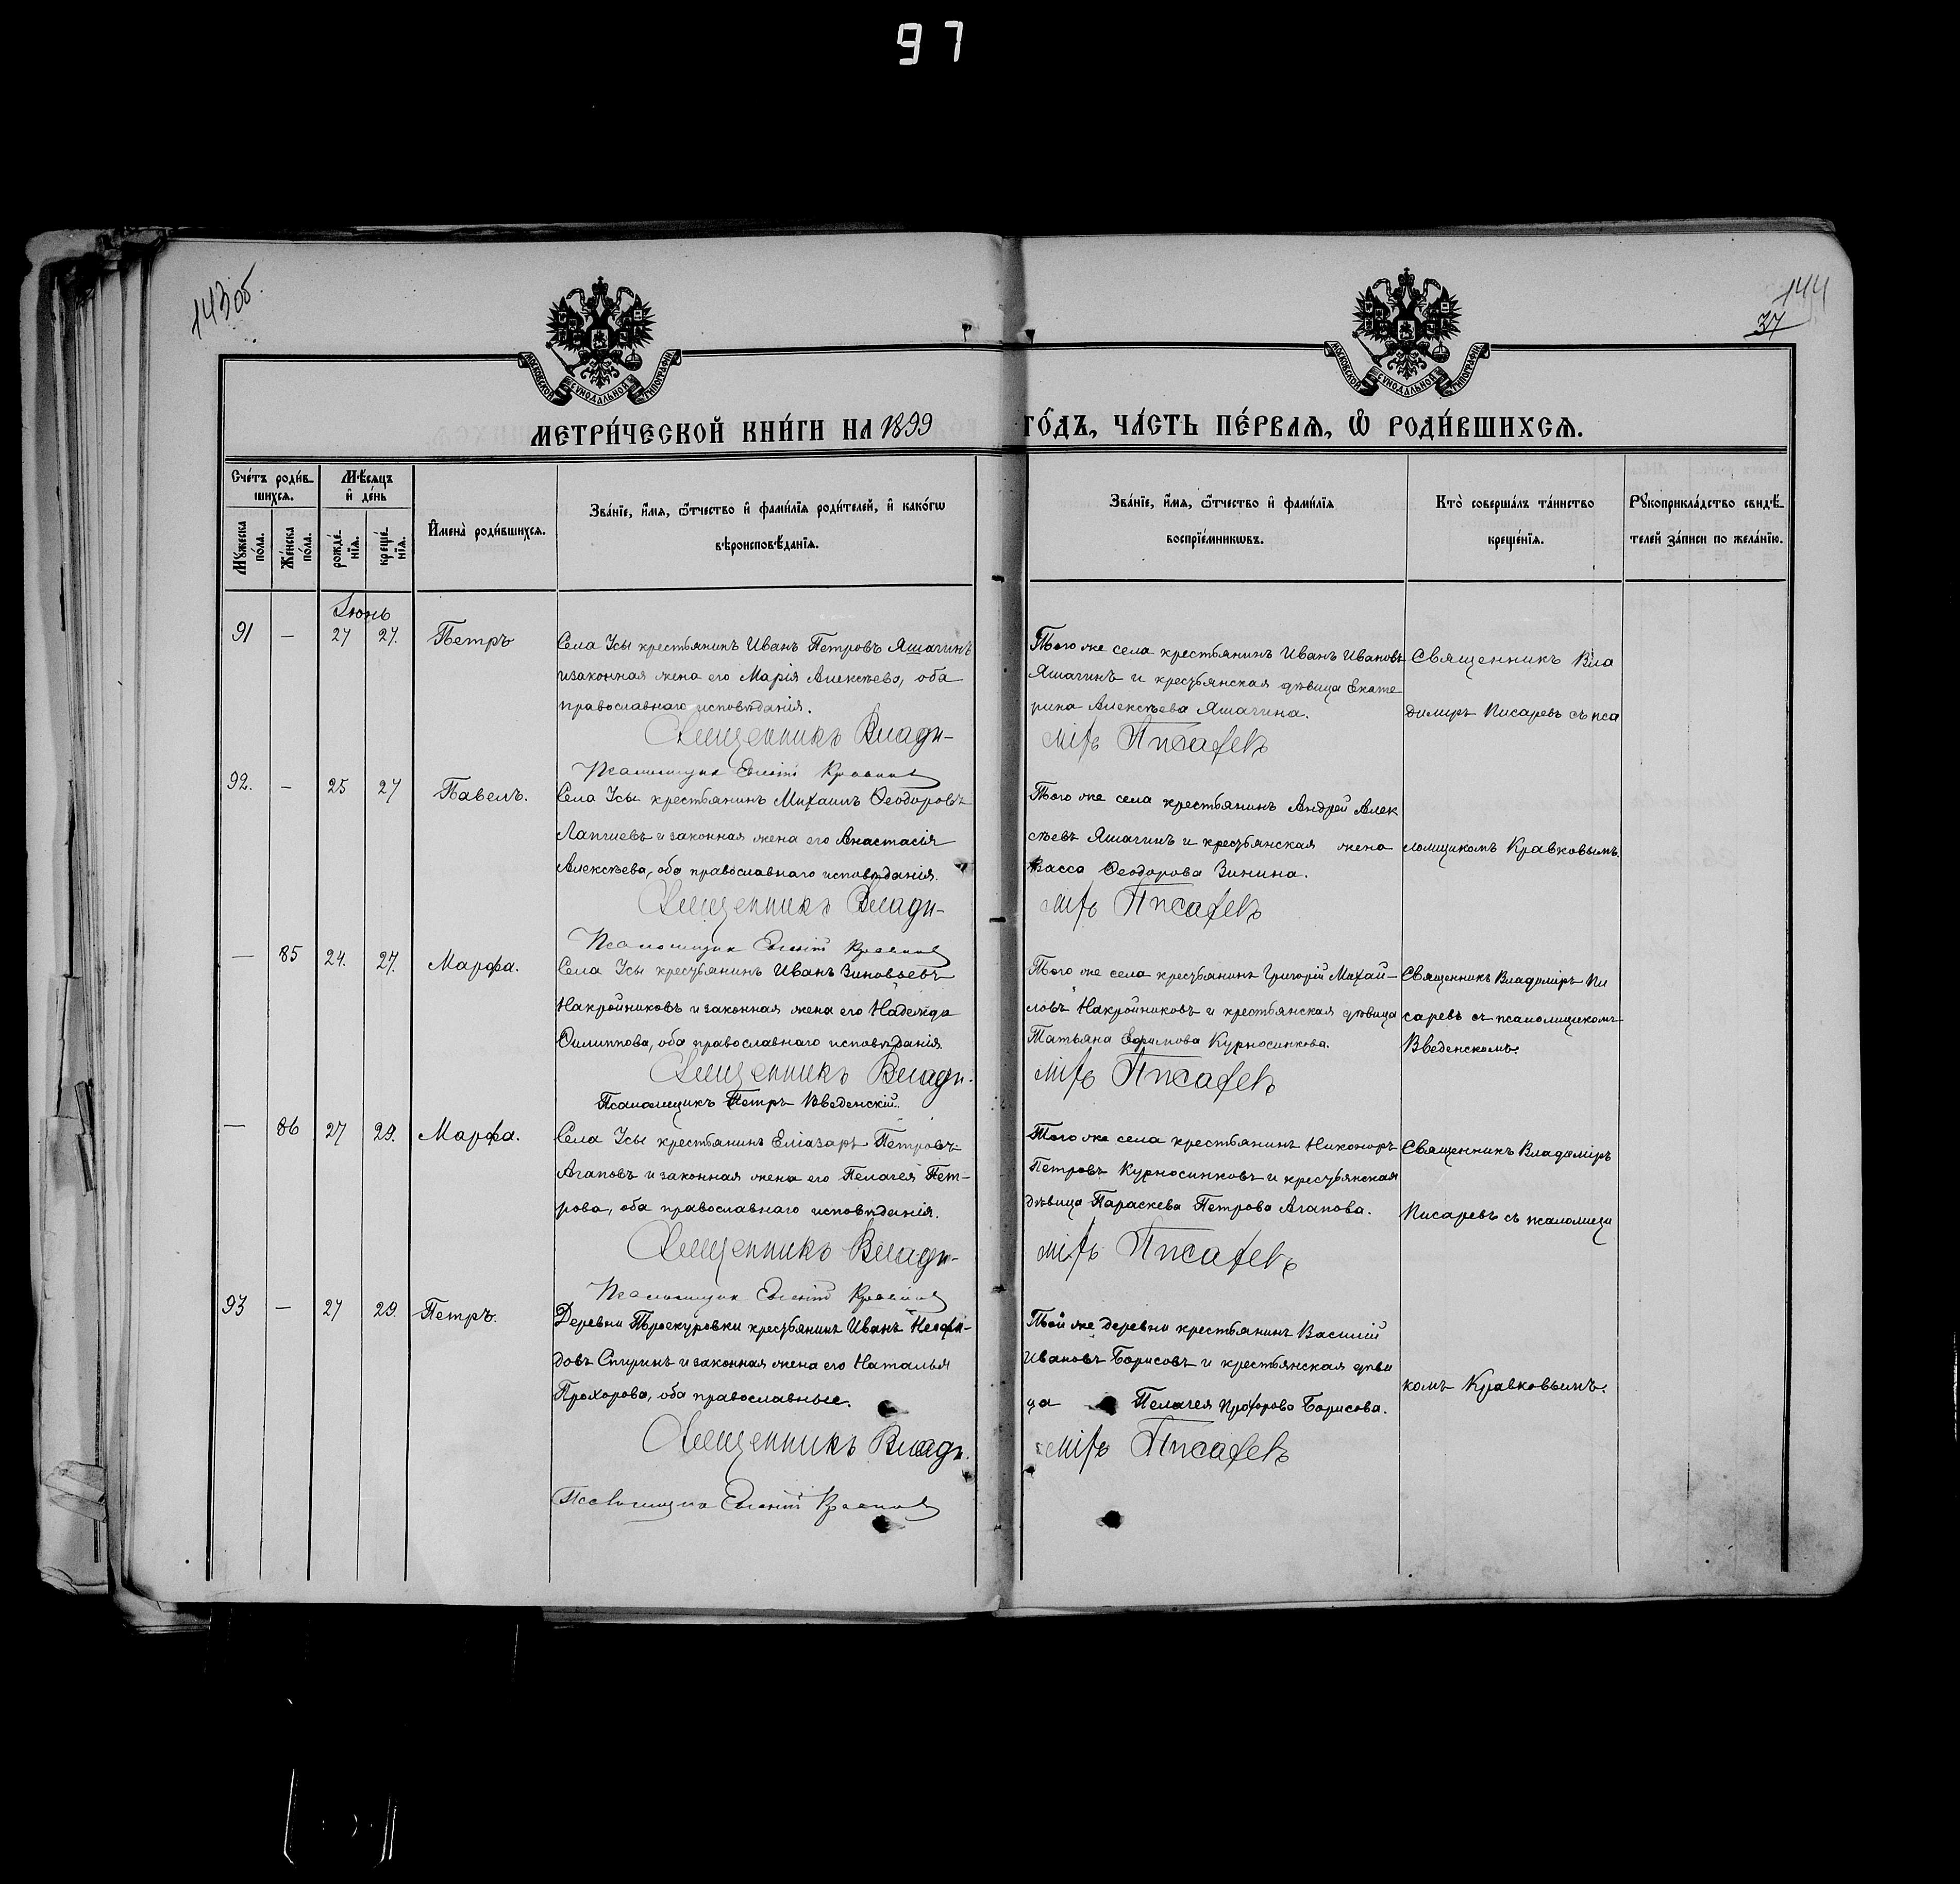 97
143 об.
144
37
МОСКОВСКОЙ СѴНОДАЛЬНОЙ ТИПОГРАФІИ
МОСКОВСКОЙ СѴНОДАЛЬНОЙ ТИПОГРАФІИ
МЕТРИ́ЧЕСКОЙ КНИ́ГИ НА 1899 ГО́ДЪ, ЧА́СТЬ ПЕ́РВАЯ, Ѡ РОДИ́ВШИХСЯ.
Сче́тъ роди́в-
шихся.
Му́жеска по́ла.
Же́нска по́ла.
Мѣ́сяцъ и де́нь
рожде́-
нія.
креще́-
нія.
Имена̀ роди́вшихся.
Зва́ніе, и́мя, ѻ́тчество и фами́лія роди́телей, и како́гѡ
вѣроисповѣ́данія.
Зва́ніе, и́мя, ѻ́тчество и фами́лія
воспріе́мникѡвъ.
Кто̀ соверша́лъ та́инство
креще́нія.
Рꙋкоприкла́дство свидѣ́-
телей за́писи по жела́нію.
Іюнь
91 — 27 27. Петръ
Села Усы крестьянинъ Иванъ Петровъ Яшагинъ
и законная жена его Марія Алексѣева, оба
православнаго исповѣданія.
Священникъ Влади-
Псаломщик Евгеній Кравков
Того же села крестьянинъ Иванъ Ивановъ
Яшагинъ и крестьянская дѣвица Екате
рина Алексѣева Яшагина.
міръ Писаревъ
Священникъ Вла
димиръ Писаревъ съ пса
92. — 25 27 Павелъ.
Села Усы крестьянинъ Михаилъ Ѳеодоровъ
Лаптевъ и законная жена его Анастасія
Алексѣева, оба православнаго исповѣданія.
Священникъ Влади-
Псаломщик Евгеній Кравков
Того же села крестьянинъ Андрей Алек
сѣевъ Яшагинъ и крестьянская жена
Васса Ѳеодорова Зинина.
міръ Писаревъ
ломщикомъ Кравковымъ.
— 85 24. 27. Марфа.
Села Усы крестьянинъ Иванъ Зиновьевъ
Накройниковъ и законная жена его Надежда
Филиппова, оба православнаго исповѣданія
Священникъ Влади-
Псаломщикъ Петръ Введенскій.
Того же села крестьянинъ Григорій Михай-
ловъ Накройниковъ и крестьянская дѣвица
Татьяна Ефимова Курносинкова.
міръ Писаревъ
Священникъ Владиміръ Пи
саревъ съ псаломщикомъ
Введенскомъ.
— 86 27 29. Марфа.
Села Усы крестьянинъ Еліазаръ Петровъ
Агаповъ и законная жена его Пелагея Пет-
рова, оба православнаго исповѣданія.
Священникъ Влади-
Псаломщик Евгеній Кравков
Того же села крестьянинъ Никоноръ
Петровъ Курносинковъ и крестьянская
дѣвица Параскева Петрова Агапова.
міръ Писаревъ
Священникъ Владиміръ
Писаревъ съ псаломщи
93 — 27 29. Петръ.
Деревни Троекуровки крестьянинъ Иванъ
довъ Спиринъ и законная жена его Наталья
Прохорова, оба православные.
Священникъ Влади-
Псаломщик Евгеній Кравков
Той же деревни крестьянинъ Василій
Ивановъ Борисовъ и крестьянская дѣви
ца Пелагея Прохорова Борисова.
міръ Писаревъ
комъ Кравковымъ.